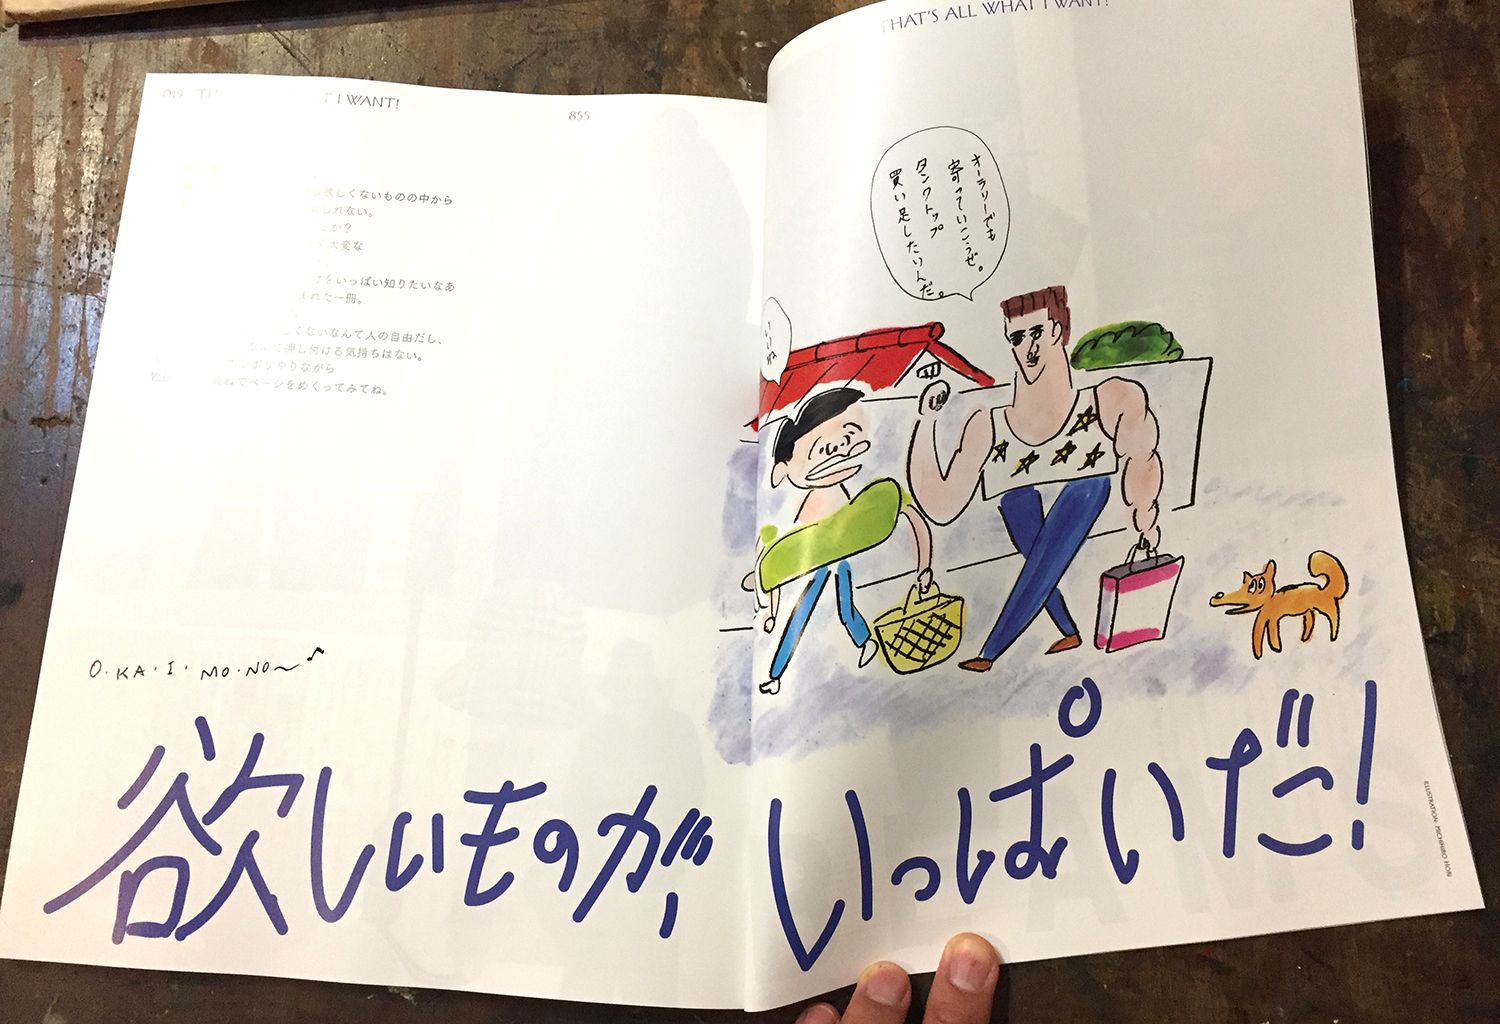 I WANT!
855
THAT'S ALL WHAT I WANT!
欲しくないものの中から
しれない。
か？
大変な
をいっぱい知りたいなあ
れた一冊。
しくないなんて人の自由だし、
押し付ける気持ちはない。
やりながら
ねてページをめくってみてね。
オーラリーでも
寄っていこうぜ。
タンクトップ
買い足したいんだ。
いいね
O・KA・I・MO・NO〜♪
欲しいものが、いっぱいだ！
ILLUSTRATION: MICHIHIRO HORI